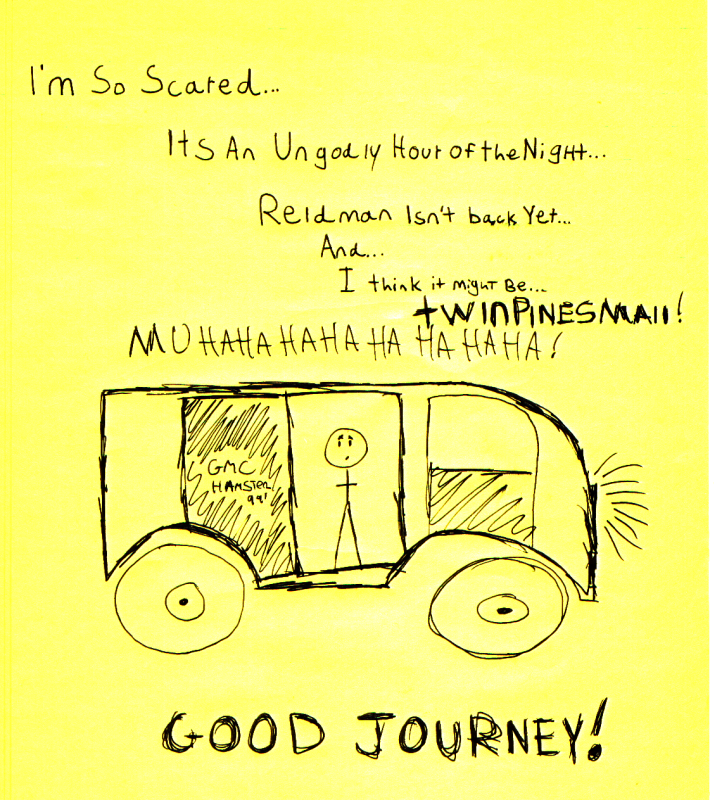 I'm So Scared...
Its An Ungodly Hour of the Night...
Reldman Isn't back Yet...
And...
I think it might Be...
twinPINESMAll!
MUHAHAHAHAHAHAHAHA!
GMC
HAMSTER
99!
GOOD JOURNEY!